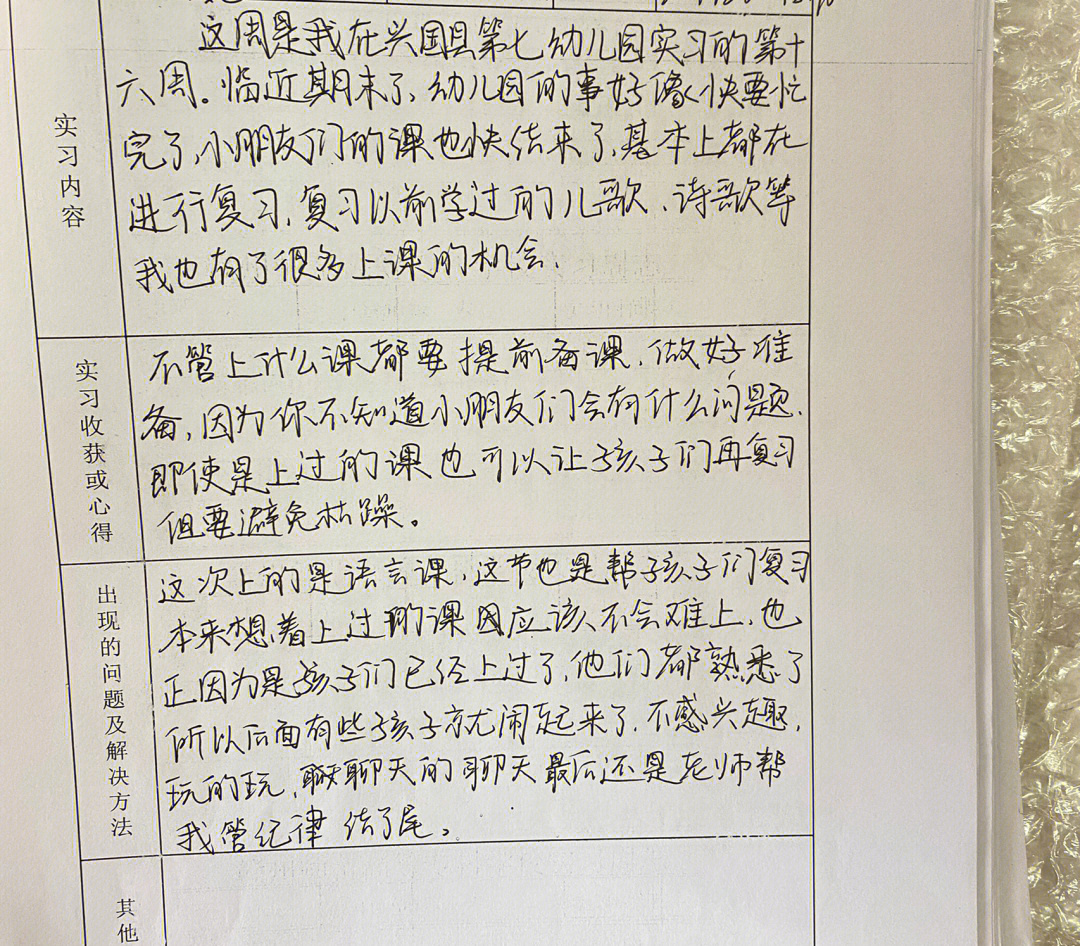 实习内容
这周是我在兴国县第七幼儿园实习的第十
六周。临近期末了,幼儿园的事好像快要忙
完了,小朋友们的课也快结束了,基本上都在
进行复习,复习以前学过的儿歌、诗歌等
我也有了很多上课的机会.
实习收获或心得
不管上什么课都要提前备课,做好准
备,因为你不知道小朋友们会有什么问题.
即使是上过的课也可以让孩子们再复习
但要避免枯躁。
出现的问题及解决方法
这次上的是语言课,这节也是帮孩子们复习
本来想着上过的课因应该不会难上,也
正因为是孩子们已经上过了,他们都熟悉了
所以后面有些孩子就闹起来了,不感兴趣,
玩的玩,聊天的聊天最后还是老师帮
我管纪律结了尾。
其他